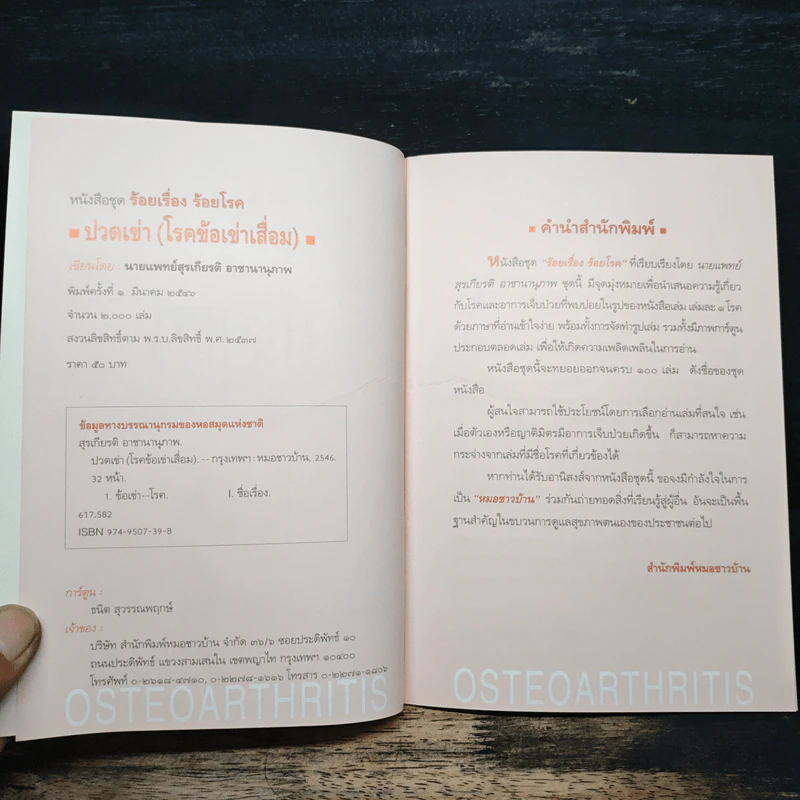 หนังสือชุด ร้อยเรื่อง ร้อยโรค
ปวดเข่า (โรคข้อเข่าเสื่อม)
เขียนโดย : นายแพทย์สุรเกียรติ อาชานานุภาพ
พิมพ์ครั้งที่ ๑ มีนาคม ๒๕๔๖
จำนวน ๒,๐๐๐ เล่ม
สงวนลิขสิทธิ์ตาม พ.ร.บ.ลิขสิทธิ์ พ.ศ.๒๕๓๗
ราคา ๕๐ บาท
ข้อมูลทางบรรณานุกรมของหอสมุดแห่งชาติ
สุรเกียรติ อาชานานุภาพ.
ปวดเข่า (โรคข้อเข่าเสื่อม). -- กรุงเทพฯ : หมอชาวบ้าน, 2546.
32 หน้า.
1. ข้อเข่า--โรค. I. ชื่อเรื่อง.
617.582
ISBN 974-9507-39-8
การ์ตูน :
ธนิต สุวรรณพฤกษ์
เจ้าของ :
บริษัท สำนักพิมพ์หมอชาวบ้าน จำกัด ๓๖/๖ ซอยประดิพัทธ์ ๑๐
ถนนประดิพัทธ์ แขวงสามเสนใน เขตพญาไท กรุงเทพฯ ๑๐๔๐๐
โทรศัพท์ ๐-๒๖๑๘-๔๗๑๐, ๐-๒๒๗๘-๑๖๑๖ โทรสาร ๐-๒๒๗๑-๑๘๐๖
OSTEOARTHRITIS
คำนำสำนักพิมพ์
หนังสือชุด "ร้อยเรื่อง ร้อยโรค" ที่เรียบเรียงโดย นายแพทย์
สุรเกียรติ อาชานานุภาพ ชุดนี้ มีจุดมุ่งหมายเพื่อนำเสนอความรู้เกี่ยว
กับโรคและอาการเจ็บป่วยที่พบบ่อยในรูปของหนังสือเล่ม เล่มละ ๑ โรค
ด้วยภาษาที่อ่านเข้าใจง่าย พร้อมทั้งการจัดทำรูปเล่ม รวมทั้งมีภาพการ์ตูน
ประกอบตลอดเล่ม เพื่อให้เกิดความเพลิดเพลินในการอ่าน
หนังสือชุดนี้จะทยอยออกจนครบ ๑๐๐ เล่ม ดังชื่อของชุด
หนังสือ
ผู้สนใจสามารถใช้ประโยชน์โดยการเลือกอ่านเล่มที่สนใจ เช่น
เมื่อตัวเองหรือญาติมิตรมีอาการเจ็บป่วยเกิดขึ้น ก็สามารถหาความ
กระจ่างจากเล่มที่มีชื่อโรคที่เกี่ยวข้องได้
หากท่านได้รับอานิสงส์จากหนังสือชุดนี้ ขอจงมีกำลังใจในการ
เป็น "หมอชาวบ้าน" ร่วมกันถ่ายทอดสิ่งที่เรียนรู้สู่ผู้อื่น อันจะเป็นพื้น
ฐานสำคัญในขบวนการดูแลสุขภาพตนเองของประชาชนต่อไป
สำนักพิมพ์หมอชาวบ้าน
OSTEOARTHRITIS